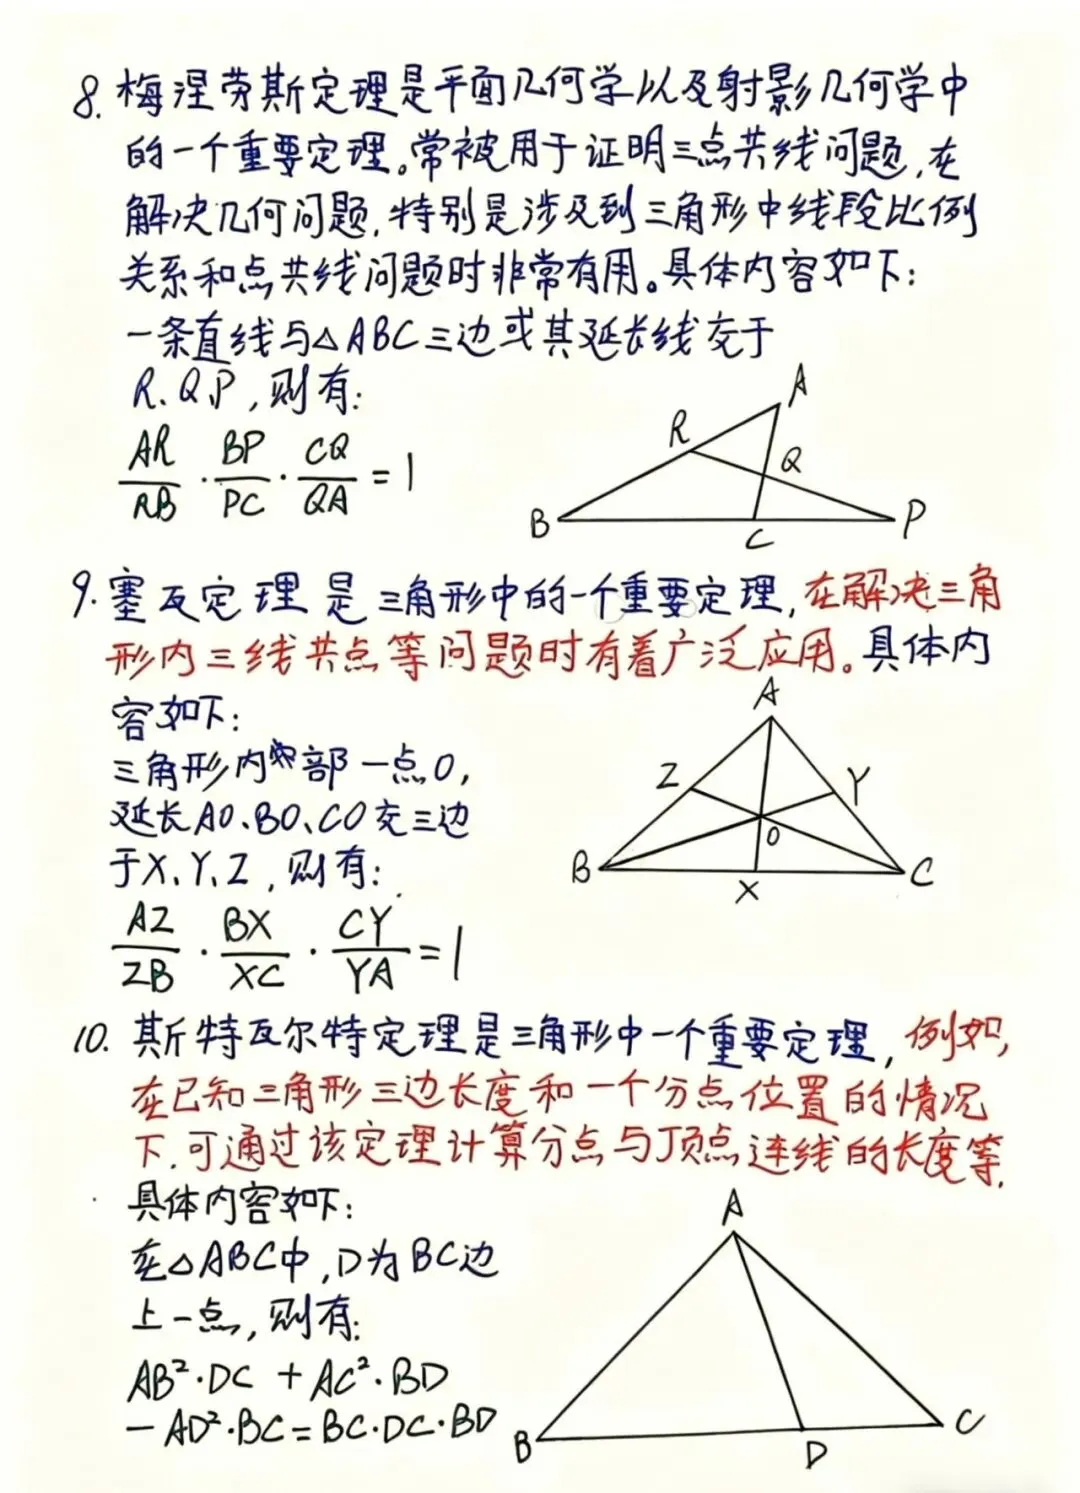 8. 梅涅劳斯定理是平面几何学以及射影几何学中
的一个重要定理。常被用于证明三点共线问题,在
解决几何问题,特别是涉及到三角形中线段比例
关系和点共线问题时非常有用。具体内容如下:
一条直线与△ABC三边或其延长线交于
R、Q、P,则有:
AR/RB · BP/PC · CQ/QA = 1
A
R
Q
B
C
P
9. 塞瓦定理是三角形中的一个重要定理,在解决三角
形内三线共点等问题时有着广泛应用。具体内
容如下:
三角形内部一点O,
延长AO、BO、CO交三边
于X、Y、Z,则有:
AZ/ZB · BX/XC · CY/YA = 1
A
Z
Y
O
B
X
C
10. 斯特瓦尔特定理是三角形中一个重要定理,例如,
在已知三角形三边长度和一个分点位置的情况
下,可通过该定理计算分点与顶点连线的长度等.
具体内容如下:
在△ABC中,D为BC边
上一点,则有:
AB²·DC + AC²·BD
-AD²·BC=BC·DC·BD
A
B
D
C